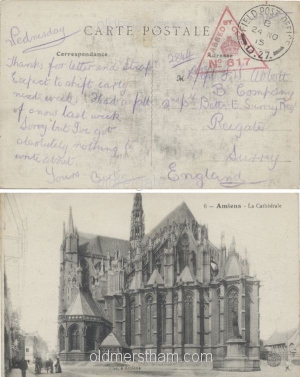 Wednesday
CARTE POSTALE
Correspondance
Adresse
FIELD POST OFFICE
24 NO
15
D.27.
PASSED BY
No 617
Thanks for letter and
Expect to shift early
next week. Had a
of snow last week
Sorry but I've got
absolutely nothing to
write about.
Yours
Abbott
B Company
Surrey Regt
Reigate
Surrey
England
8 - Amiens - La Cathédrale
oldmerstham.com